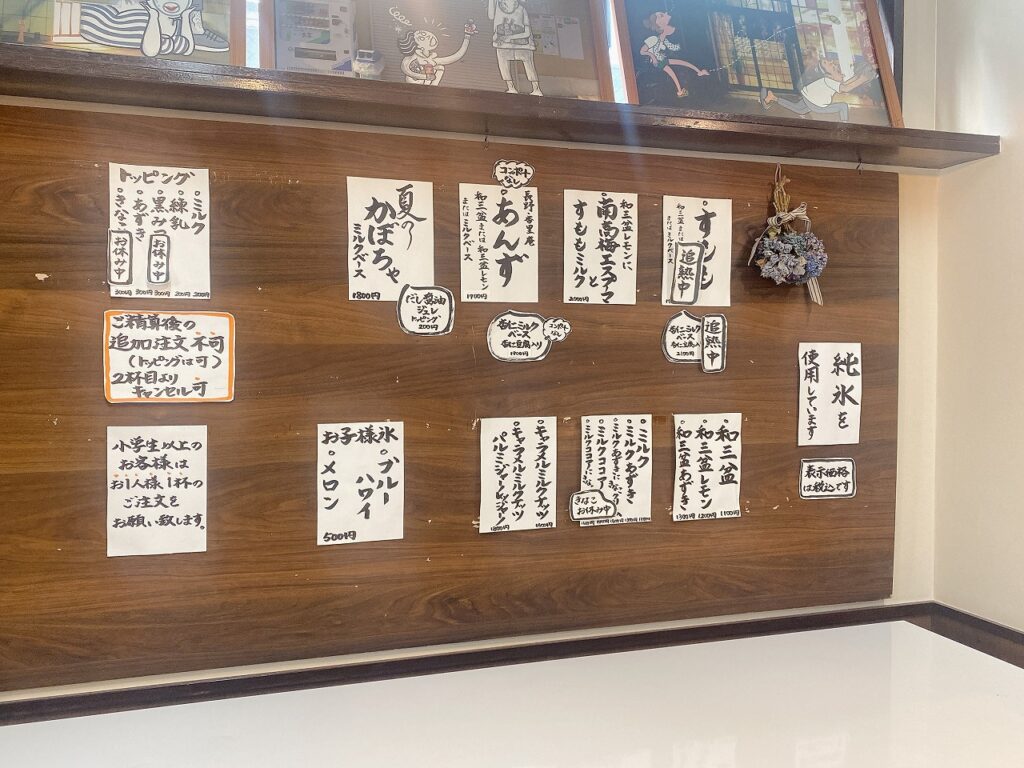 トッピング
ミルク
練乳
黒みつ
あずき
きなこ
お休み中
お休み中
300円 300円 300円 200円 200円
ご精算後の
追加注文不可
(トッピングは可)
2杯目より
キャンセル可
小学生以上の
お客様は
お1人様、1杯の
ご注文を
お願い致します。
夏の
かぼちゃ
ミルクベース
1800円
だし醤油
ジュレ
トッピング
200円
コンポート
なし
長野・杏里庵
あんず
和三盆または和三盆レモン
またはミルクベース
1700円
杏仁ミルク
ベース
杏仁豆腐入り
1900円
コンポート
なし
和三盆レモンに
南高梅エスプーマ
と
すももミルク
2000円
すもも
和三盆
またはミルクベース
追熟中
杏仁ミルク
ベース
杏仁豆腐入り
2100円
追熟中
純氷を
使用しています
表示価格
は税込です
お子様氷
ブルー
ハワイ
メロン
500円
キャラメルミルクナッツ
キャラメルミルクナッツ
パルミジャーノレッジャーノ
ミルク
ミルクあずき
ミルクあずきにきなこ
ミルクココア
ミルクココアにきなこ
きなこ
お休み中
和三盆
和三盆レモン
和三盆あずき
1300円 1200円 1100円